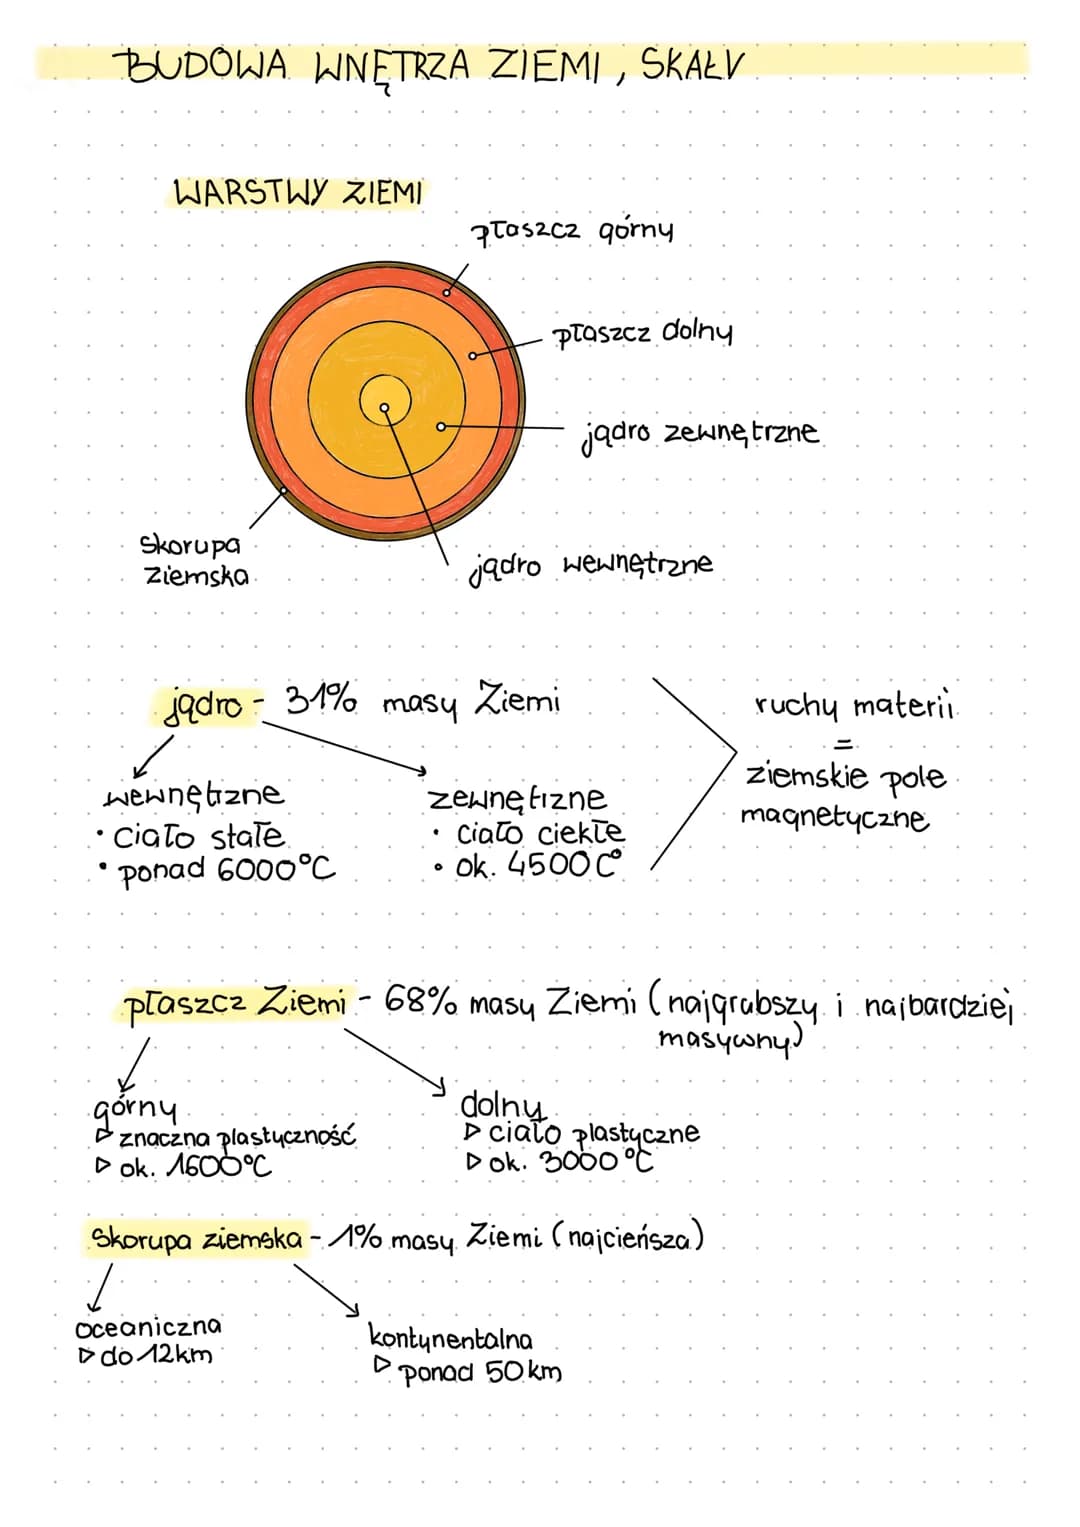 BUDOWA WNĘTRZA ZIEMI, SKAŁY
WARSTWY ZIEMI
płaszcz górny
płaszcz dolny
jądro zewnętrzne
skorupa
ziemska
jądro wewnętrzne
jądro - 31% masy Ziemi
ruchy materii
=
ziemskie pole
magnetyczne
wewnętrzne
• ciało stałe
• ponad 6000°C
zewnętrzne
• ciało ciekłe
• ok. 4500C°
płaszcz Ziemi - 68% masy Ziemi (najgrubszy i najbardziej
masywny)
górny
▷ znaczna plastyczność
▷ ok. 1600°C
dolny
▷ ciało plastyczne
▷ ok. 3000°C
Skorupa ziemska - 1% masy Ziemi (najcieńsza)
oceaniczna
▷ do 12km
kontynentalna
▷ ponad 50km